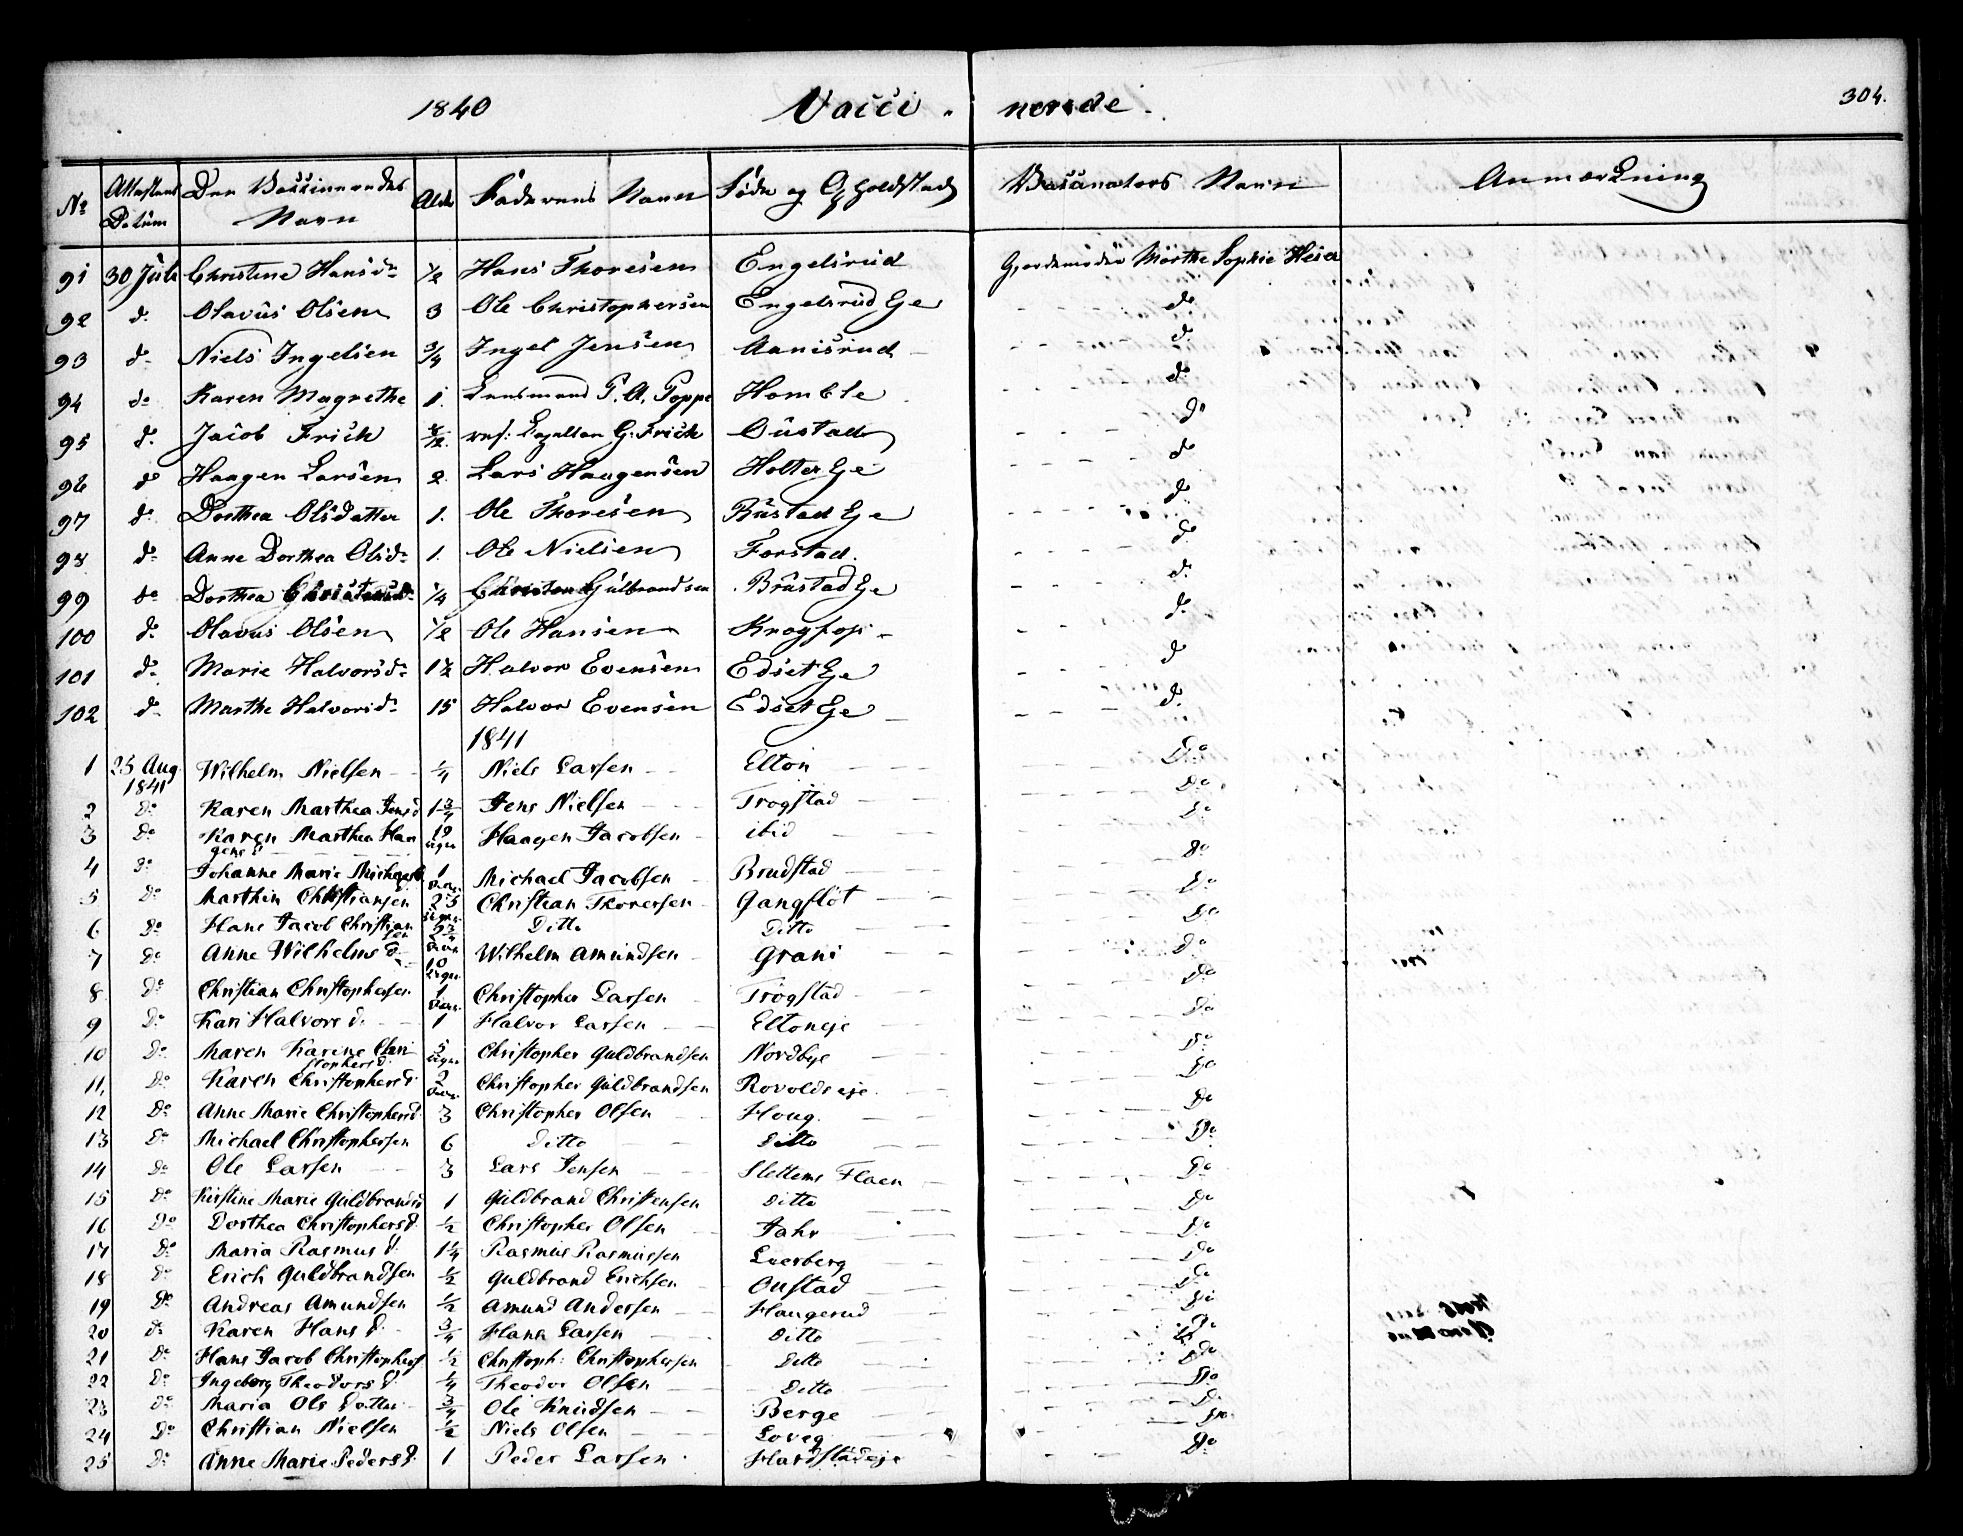 1840 Vacci- nerede. 304.
No Attestens Datum Den Vaccineredes Navn Alder Faderens Navn Føde og Opholdsted Vacanators Navn Anmærkning
91 30 Juli Christine Hansdr 1/2 Hans Thoresen Engelsrud Gjordemoder Marthe Sophie Heier
92 do Olavus Olsen 3 Ole Christophersen Engelsrud Eje do
93 do Niels Ingelsen 3/4 Ingel Jensen Aanisrud do
94 do Karen Magrethe 1. Lensmand P. A. Poppe Homble do
95 do Jacob Frick Capellan G. Frick Oustad do
96 do Haagen Larsen 2. Lars Haagensen Holter Eje do
97 do Dorthea Olsdatter 1. Ole Thoresen Brustad Eje do
98 do Anne Dorthea Olsdr 1. Ole Nielsen Forstad. do
99 do Dorthea 1/4 Gulbrandsen Brustad Eje do
100 do Olavus Olsen 1/2 Ole Hansen Krogfos do
101 do Marie Halvorsdr 1 1/2 Halvor Evensen Edset Eje do
102 do Marthe Halvorsdr 15 Halvor Evensen Edset Eje do
1841
1 25 Aug 1841 Wilhelm Nielsen 1/4 Niels Larsen Elton Do
2 Do Karen Marthea Jensd 1 3/4 Jens Nielsen Trogstad Do
3 Do Karen Marthea Haagensd 19 Uger Haagen Jacobsen ibid Do
4 Do Johanne Marie Michaels 1 Michael Jacobsen Brudstad Do
5 Do Marthin Christiansen 25 Uger Christian Thoversen Gangfløt Do
6 Do Hans Jacob Christiansen Ditto Ditto Do
7 Do Anne Wilhelmsd 10 Uger Wilhelm Amundsen Grani Do
8 Do Christian Christophersen 1 Christopher Larsen Trøgstad Do
9 Do Kari Halvorsd. 1 Halvor Larsen Eltoneje Do
10 Do Maren Karine Christophersd 5 Uger Christopher Guldbrandsen Nordbye Do
11, Do Karen Christophersd. 2 Christopher Guldbrandsen Rovoldseje Do
12 Do Anne Marie Christophersd. 3 Christopher Olsen Houg. Do
13 Do Michael Christophersen 6 Ditto Ditto Do
14 Do Ole Larsen 3 Lars Jensen Slettems Floen Do
15 Do Kirstine Marie Guldbrandsd 1 Guldbrand Christensen Ditto Do
16 Do Dorthea Christophersd. 1/2 Christopher Olsen Jahr Do
17 Do Maria Rasmusd. 1 1/4 Rasmus Rasmussen Lverberg Do
18 Do Erich Guldbrandsen 1/2 Guldbrand Erichsen Oustad Do
19 Do Andreas Amundsen 1/2 Amund Andersen Haugerud Do
20 do Karen Hansd. 3/4 Hans Larsen Ditto Do
21 Do Hans Jacob Christophers 1/2 Christoph: Christophersen Ditto Do
22 Do Ingeborg Theodorsd. 1/4 Theodor Olsen Ditto Do
23 Do Maria Ols Datter 3/4 Ole Knudsen Berge Do
24 Do Christian Nielsen 1/2 Niels Olsen Loveg Do
25 Do Anne Marie Pedersd. 1 Peder Larsen Hardstadeje Do